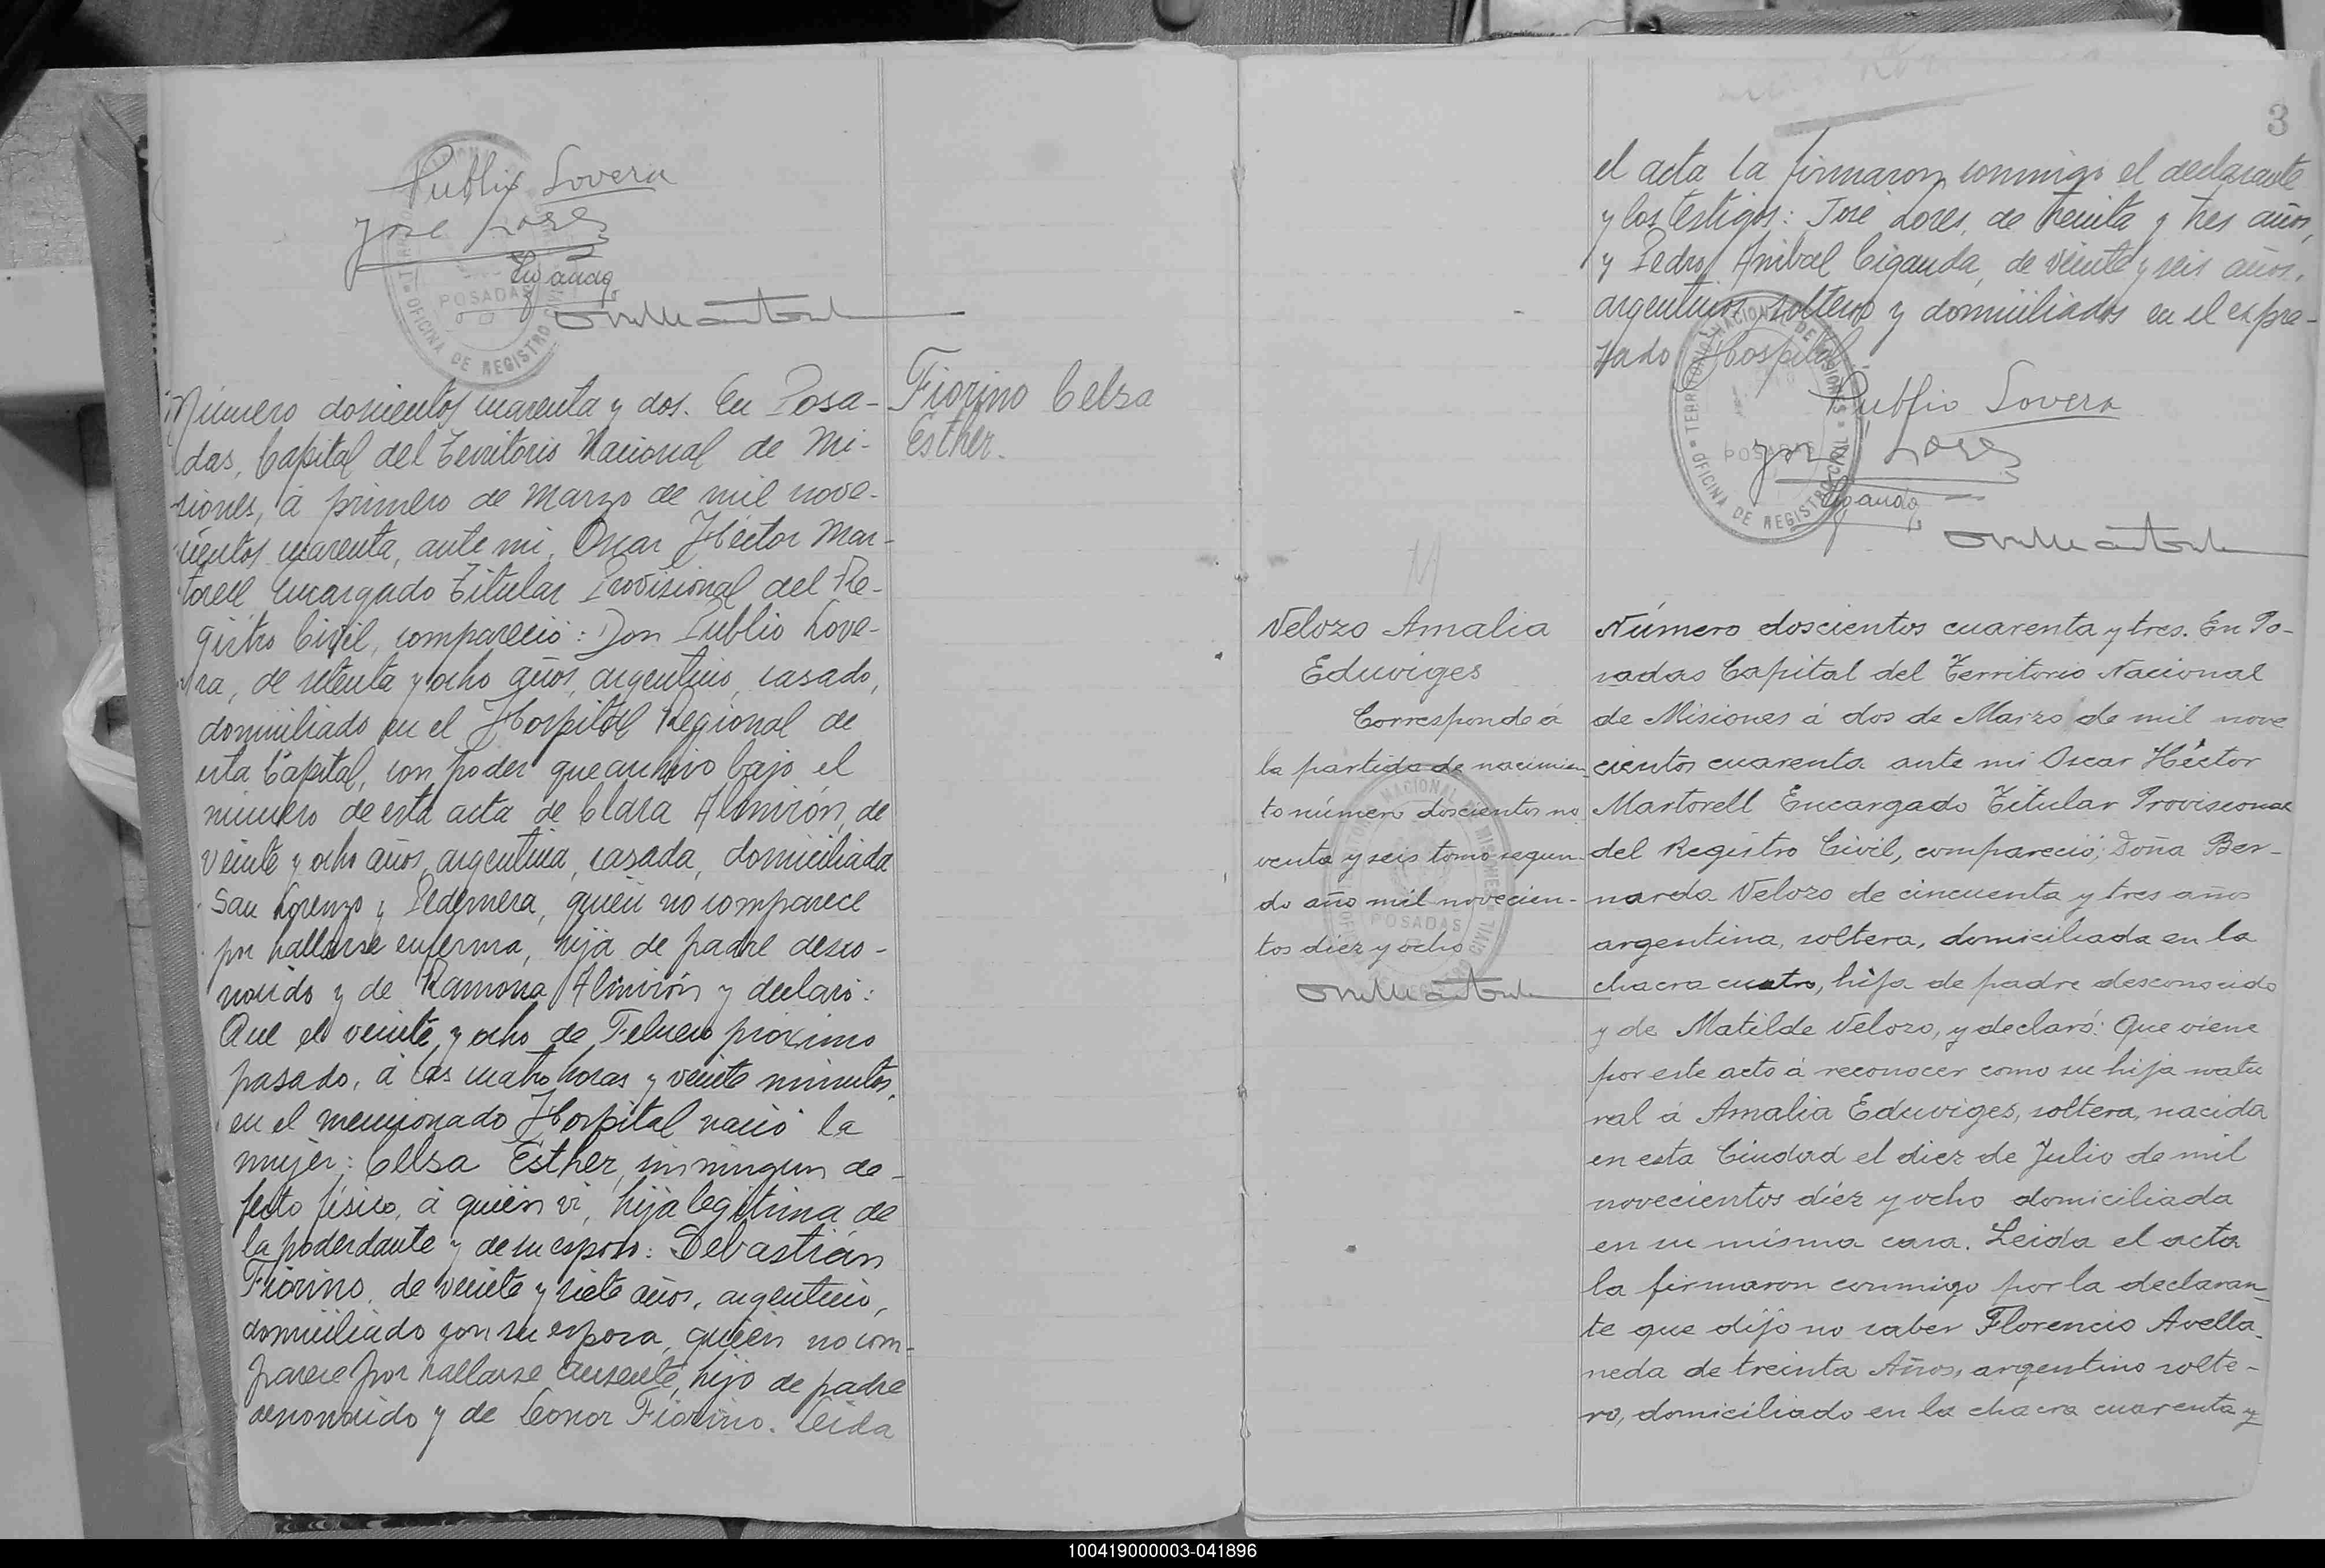 Publio Lovera
José Lores
Ciganda
POSADAS
OFICINA DE REGISTRO CIVIL
Número doscientos cuarenta y dos. En Posa-
das, Capital del Territorio Nacional de Mi-
siones, á primero de Marzo de mil nove-
cientos cuarenta, ante mi, Oscar Héctor Mar-
torell Encargado Titular Provisional del Re-
gistro Civil, compareció: Don Publio Love-
ra, de setenta y ocho años, argentino, casado,
domiciliado en el Hospital Regional de
esta Capital, con poder que archivo bajo el
número de esta acta de Clara Almirón, de
veinte y ocho años, argentina, casada, domiciliada
San Lorenzo y Pedernera, quién no comparece
por hallarse enferma, hija de padre desco-
nocido y de Ramona Almirón y declaró:
Que el veinte y ocho de Febrero próximo
pasado, á las cuatro horas y veinte minutos,
en el mencionado Hospital nació la
mujer: Celsa Esther, sin ningun de-
fecto físico, á quién vi, hija legítima de
la poderdante y de su esposo: Sebastián
Fiorino, de veinte y siete años, argentino,
domiciliado con su esposa, quién no com-
parece por hallarse ausente, hijo de padre
desconocido y de Leonor Fiorino. Leída
Fiorino Celsa
Esther.
3
el acta la firmaron conmigo el declarante
y los testigos: José Lores, de treinta y tres años,
y Pedro Anibal Ciganda, de veinte y seis años,
argentinos, solteros y domiciliados en el expre-
sado Hospital.
TERRITORIO NACIONAL DE MISIONES
POSADAS
OFICINA DE REGISTRO CIVIL
Publio Lovera
José Lores
Ciganda
Velozo Amalia
Eduviges
Corresponde á
la partida de nacimien
to número doscientos no
venta y seis tomo segun-
do año mil novecien-
tos diez y ocho
NACIONAL MISIONES
POSADAS
Número doscientos cuarenta y tres. En Po-
sadas Capital del Territorio Nacional
de Misiones á dos de Marzo de mil nove
cientos cuarenta ante mi Oscar Héctor
Martorell Encargado Titular Provisional
del Registro Civil, compareció; Doña Ber-
narda Velozo de cincuenta y tres años
argentina, soltera, domiciliada en la
chacra cuatro, hija de padre desconocido
y de Matilde Velozo, y declaró: Que viene
por este acto á reconocer como su hija natu
ral á Amalia Eduviges, soltera, nacida
en esta Ciudad el diez de Julio de mil
novecientos diez y ocho domiciliada
en su misma casa. Leida el acta
la firmaron conmigo por la declaran-
te que dijo no saber Florencio Avella-
neda de treinta Años, argentino solte-
ro, domiciliado en la chacra cuarenta y
100419000003-041896